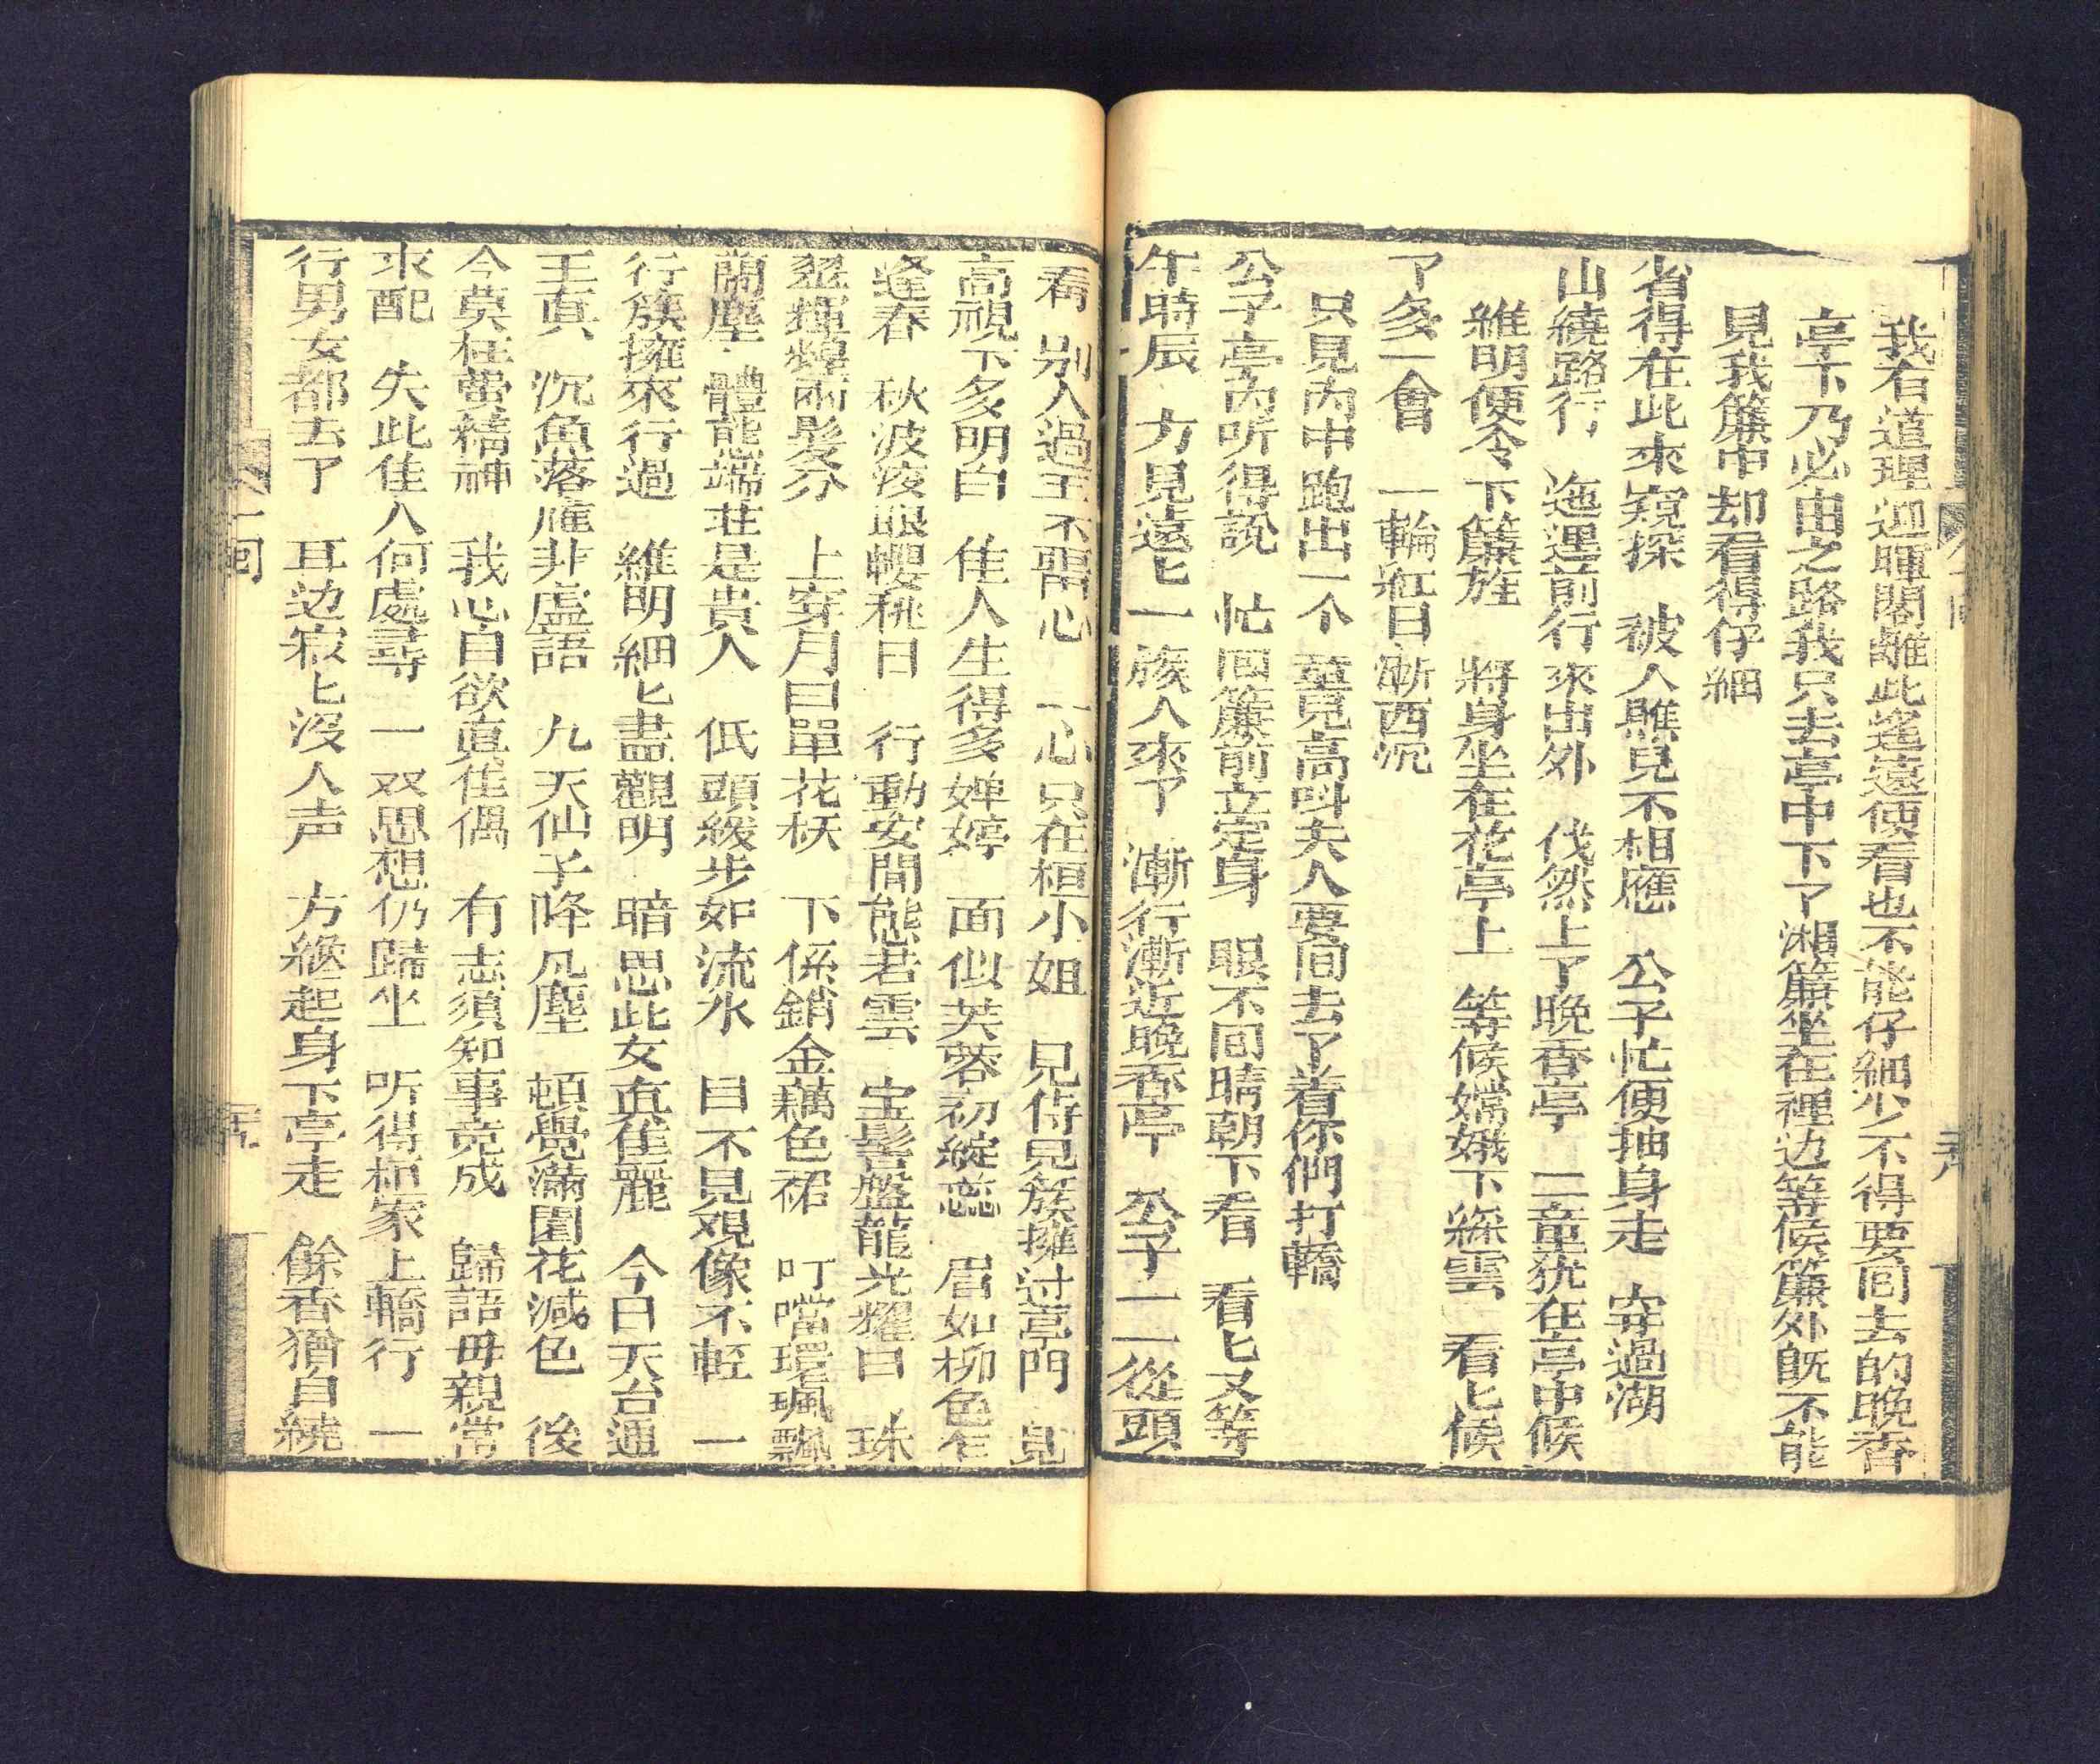 我有道理迎暉閣離此遙遠便看也不能仔細少不得要回去的晚香
亭下乃必由之路我只去亭中下了湘簾坐在裡边等候簾外旣不能
見我簾中却看得仔細
省得在此來窺探 被人瞧見不相應 公子忙便抽身走 穿過湖
山繞路行 迤逦前行來出外 伐然上了晚香亭 二童犹在亭中候
維明便令下簾旌 將身坐在花亭上 等候嫦娥下綵雲 看匕候
了多一會 一輪紅日漸西沉
只見內中跑出一个童兒高呌夫人要回去了着你們打轎
公子亭內听得說 忙回簾前立定身 眼不回睛朝下看 看匕又等
午時辰 方見遠匕一簇人來了 漸行漸近晚香亭 公子一一從頭
看 别人過至不留心 一心只在桓小姐 見侍兒簇擁过亭門
高視下多明白 佳人生得多婵婷 面似芙蓉初綻蕊 眉如柳色乍
逢春 秋波凌眼櫻桃口 行動安閒態若雲 宝髻盤龍光耀日 珠
翠輝煌兩髮分 上穿月白單花袄 下係銷金藕色裙 叮噹環珮飄
蘭塵 體態端莊是貴人 低頭緩步如流水 目不見观像不輕 一
行簇擁來行過 維明細匕盡觀明 暗思此女真佳麗 今日天台遇
王真 沉魚落雁非虛語 九天仙子降凡塵 頓覺滿園花減色 後
今莫枉費精神 我心自欲真佳偶 有志須知事竟成 歸語毋親常
求配 失此佳人何處尋 一双思想仍歸坐 听得桓家上轎行 一
行男女都去了 耳边寂匕沒人声 方纔起身下亭走 餘香猶自繞